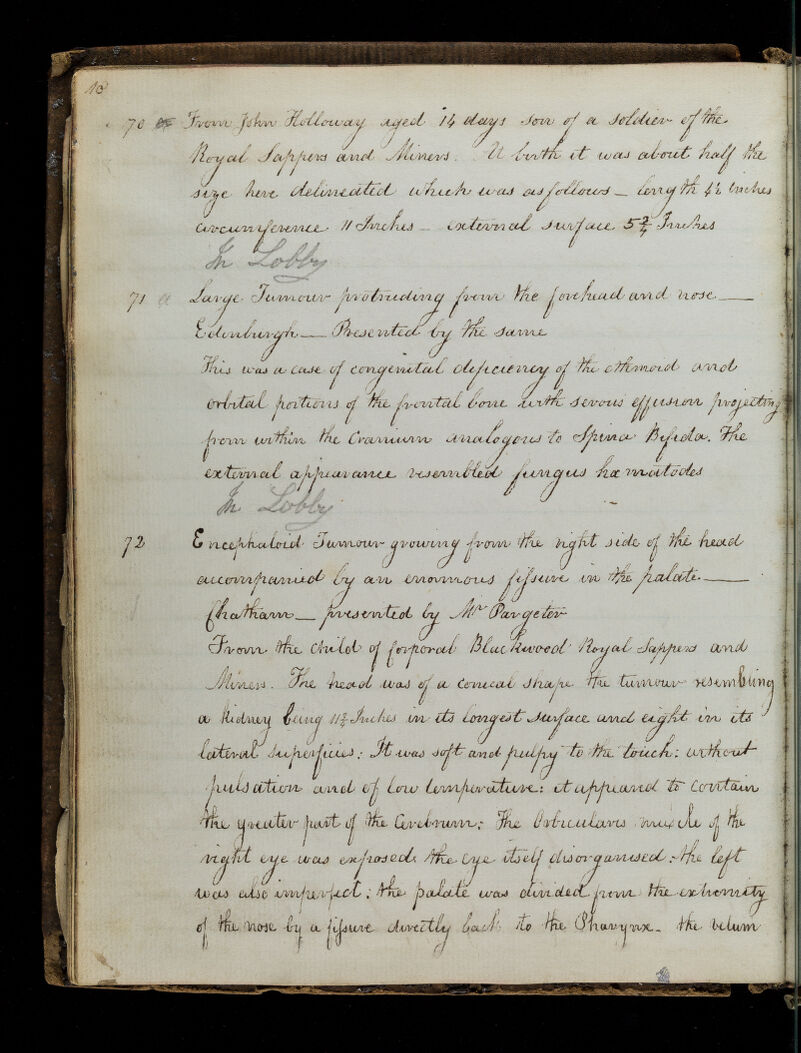 10
70 From John Holloway aged 14 days son of a Soldier of the
Royal Sappers and Miners. At birth it was about half the
size here delineated which was as follows — length 4½ Inches
circumference 11 Inches — external surface 5¾ Inches
In Lobby
71 a Large Tumour protruding from the forehead and nose —
Edinburgh — Presented by the same
This was a case of congenital deficiency of the ethmoid and
orbital portions of the frontal bone with serous effusion projecting
from within the Cranium analogous to Spina Bifida. The
external appearance resembled fungus hæmatodes
In Lobby
72 Encephaloid Tumour growing from the right side of the head
accompanied by an enormous fissure in the palate. —
Chatham — presented by Mr Pargeter
From the child of Corporal Blackwood Royal Sappers and
Miners. The head was of a conical shape the tumour resembling
a kidney being 11½ Inches in its longest surface and eight in its
lateral superficies: It was soft and pulpy to the touch: without
pulsation and of low temperature: it appeared to contain
the greater part of the Cerebrum; The Orbicularis muscle of the
right eye was exposed: the eye itself disorganised: the left
was also imperfect; the palate was divided from the extremity
of the nose by a fissure directly back to the Pharynx — the velum